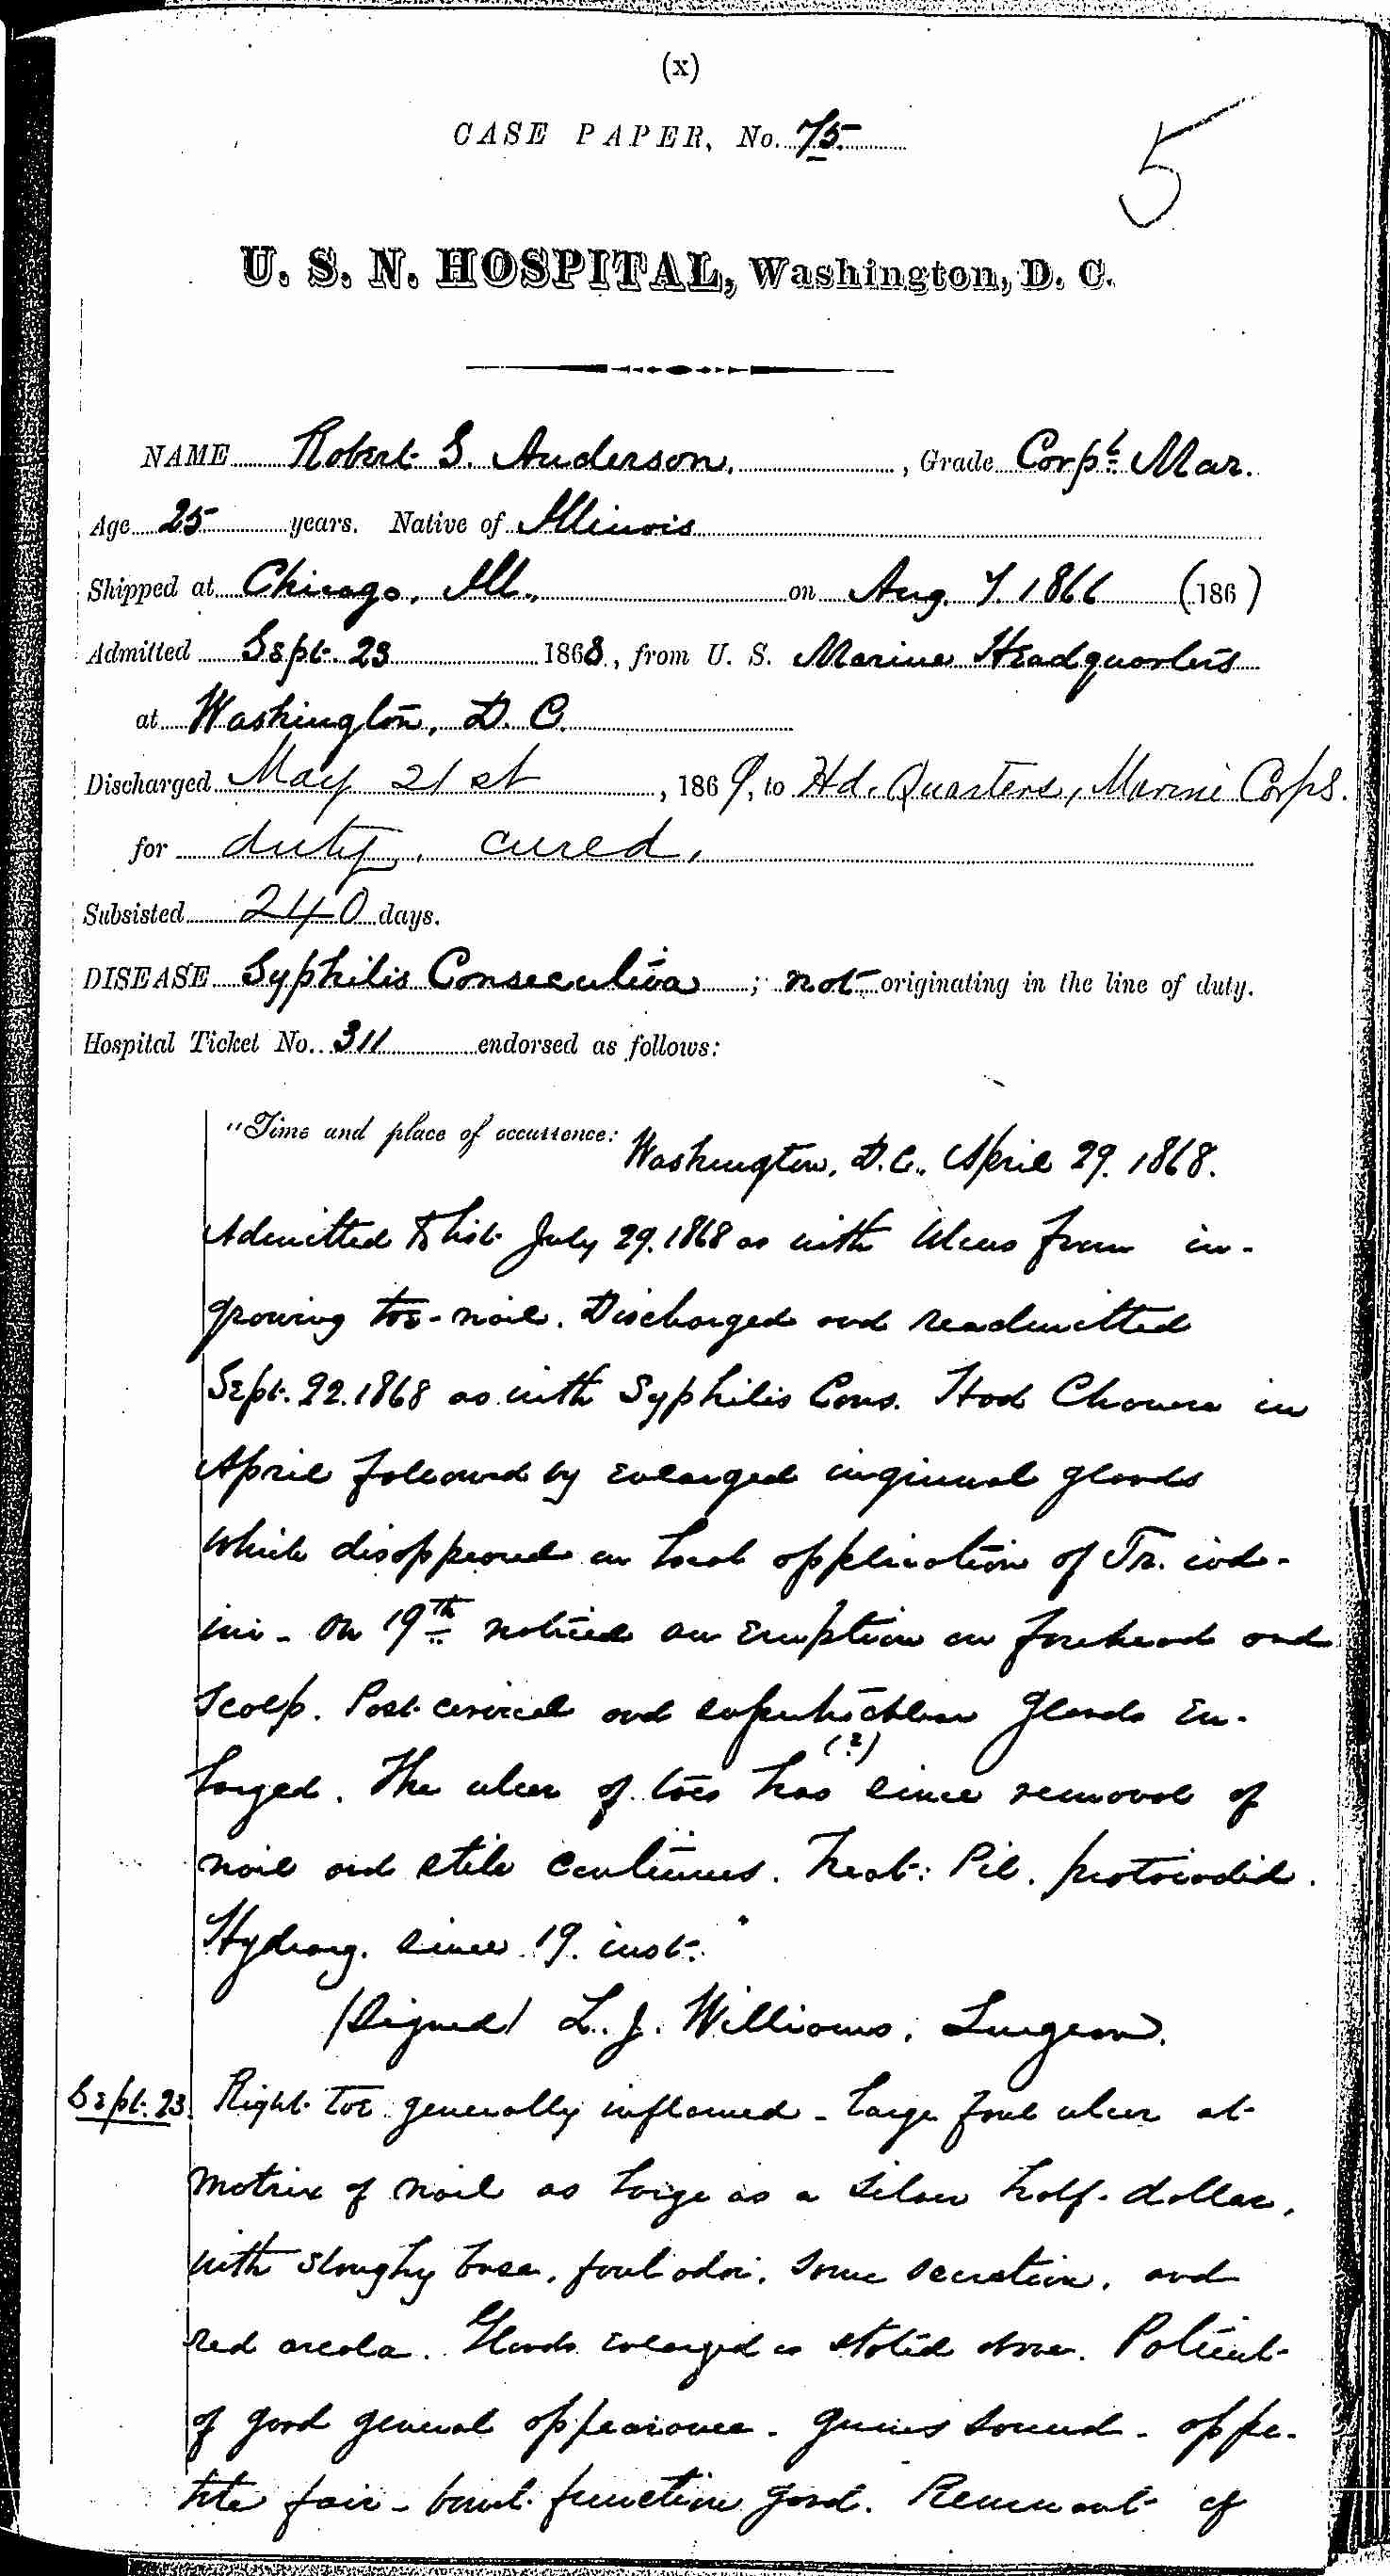 (x)
CASE PAPER, No. 75.
5
U. S. N. HOSPITAL, Washington, D. C.
NAME Robert S. Anderson, Grade Corpl Mar.
Age 25 years. Native of Illinois
Shipped at Chicago, Ill., on Aug. 7. 1866 (186 )
Admitted Sept. 23 1868, from U. S. Marine Headquarters
at Washington, D. C.
Discharged May 21st, 1869, to Hd. Quarters, Marine Corps.
for duty, cured.
Subsisted 240 days.
DISEASE Syphilis Consecutiva; not originating in the line of duty.
Hospital Ticket No. 311 endorsed as follows:
"Time and place of occurrence: Washington, D.C., April 29. 1868.
Admitted to list July 29. 1868 as with Ulcus from in-
growing toe-nail. Discharged and readmitted
Sept. 22. 1868 as with Syphilis Cons. Had Chancre in
April followed by enlarged inguinal glands
which disappeared on local application of Tr. iod-
ini - On 19th noticed an eruption on forehead and
scalp. Post-cervical and glands en-
larged. The ulcer of toes has (?) since removal of
nail and still continues. Treat: Pil. protoiodid.
Hydrarg. since 19. inst."
(Signed) L. J. Williams, Surgeon.
Sept. 23. Right toe generally inflamed - large foul ulcer at
matrix of nail as large as a silver half-dollar,
with sloughy base, foul odor, some secretion, and
red areola. Glands enlarged as stated above. Patient
of good general appearance - gums sound - appe-
tite fair - bowel function good. Remnant of